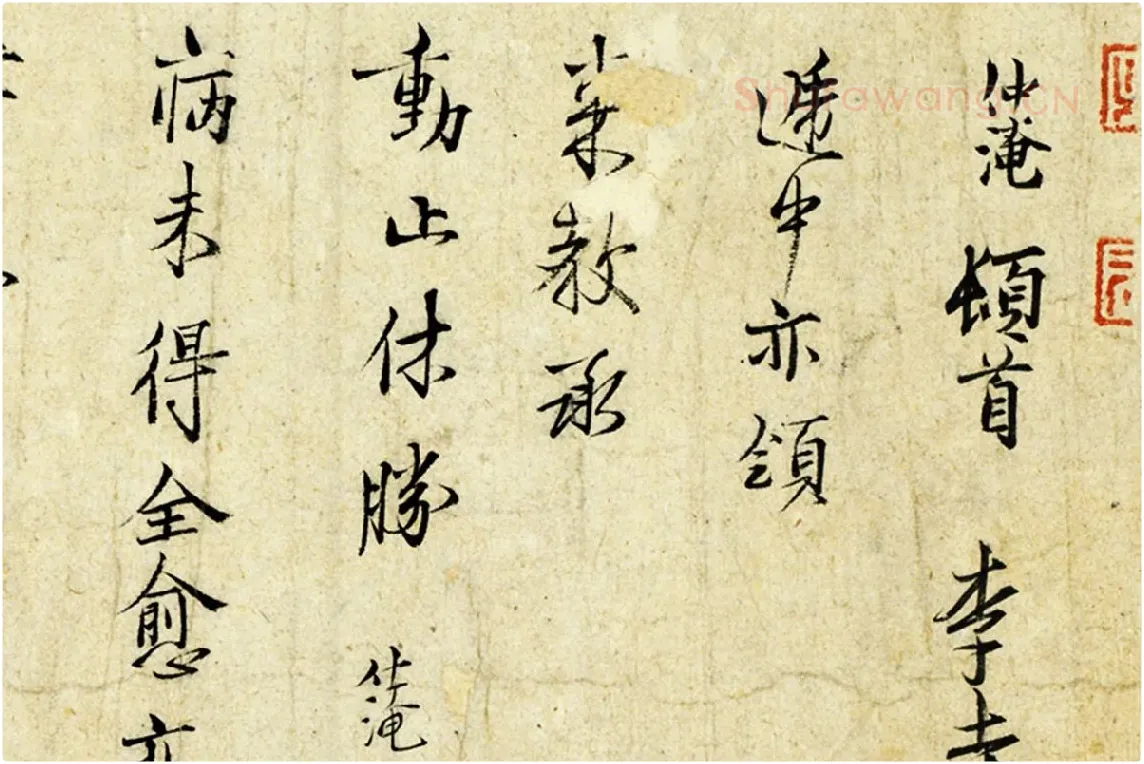 仲淹頓首 李寺
遞中亦領
来教承
動止休勝 仲淹
病未得全愈亦
Shufawang.CN